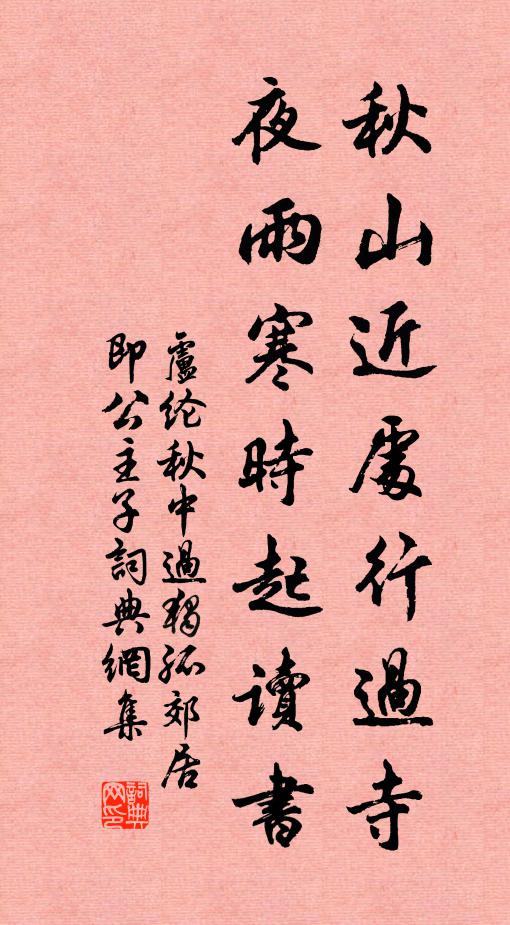 秋山近處行過寺
夜雨寒時起讀書
盧纶秋中過獨孤郊居
即公主子詞典網集
詞典网印